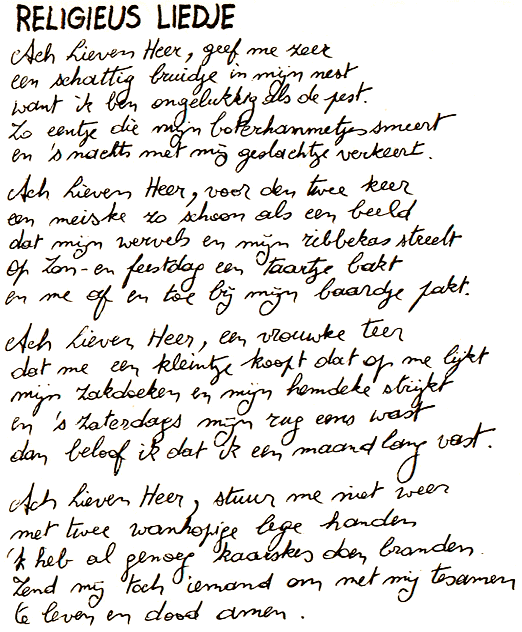 RELIGIEUS LIEDJE
Ach Lieven Heer, geef me zeer
een schattig bruidje in mijn nest
want ik ben ongelukkig als de pest.
Zo eentje die mijn boterhammetjes smeert
en 's nachts met mij geslachtje verkeert.
Ach Lieven Heer, voor den twee keer
een meiske zo schoon als een beeld
dat mijn wervels en mijn ribbekas streelt
op Zon- en feestdag een taartje bakt
en me af en toe bij mijn baardje pakt.
Ach Lieven Heer, een vrouwke teer
dat me een kleintje koopt dat op me lijkt
mijn zakdoeken en mijn hemdeke strijkt
en 's zaterdags mijn rug eens wast
dan beloof ik dat ik een maand lang vast.
Ach Lieven Heer, stuur me niet weer
met twee wanhopige lege handen
'k heb al genoeg kaarskes doen branden.
Zend mij toch iemand om met mij tesamen
te leven en dood amen.